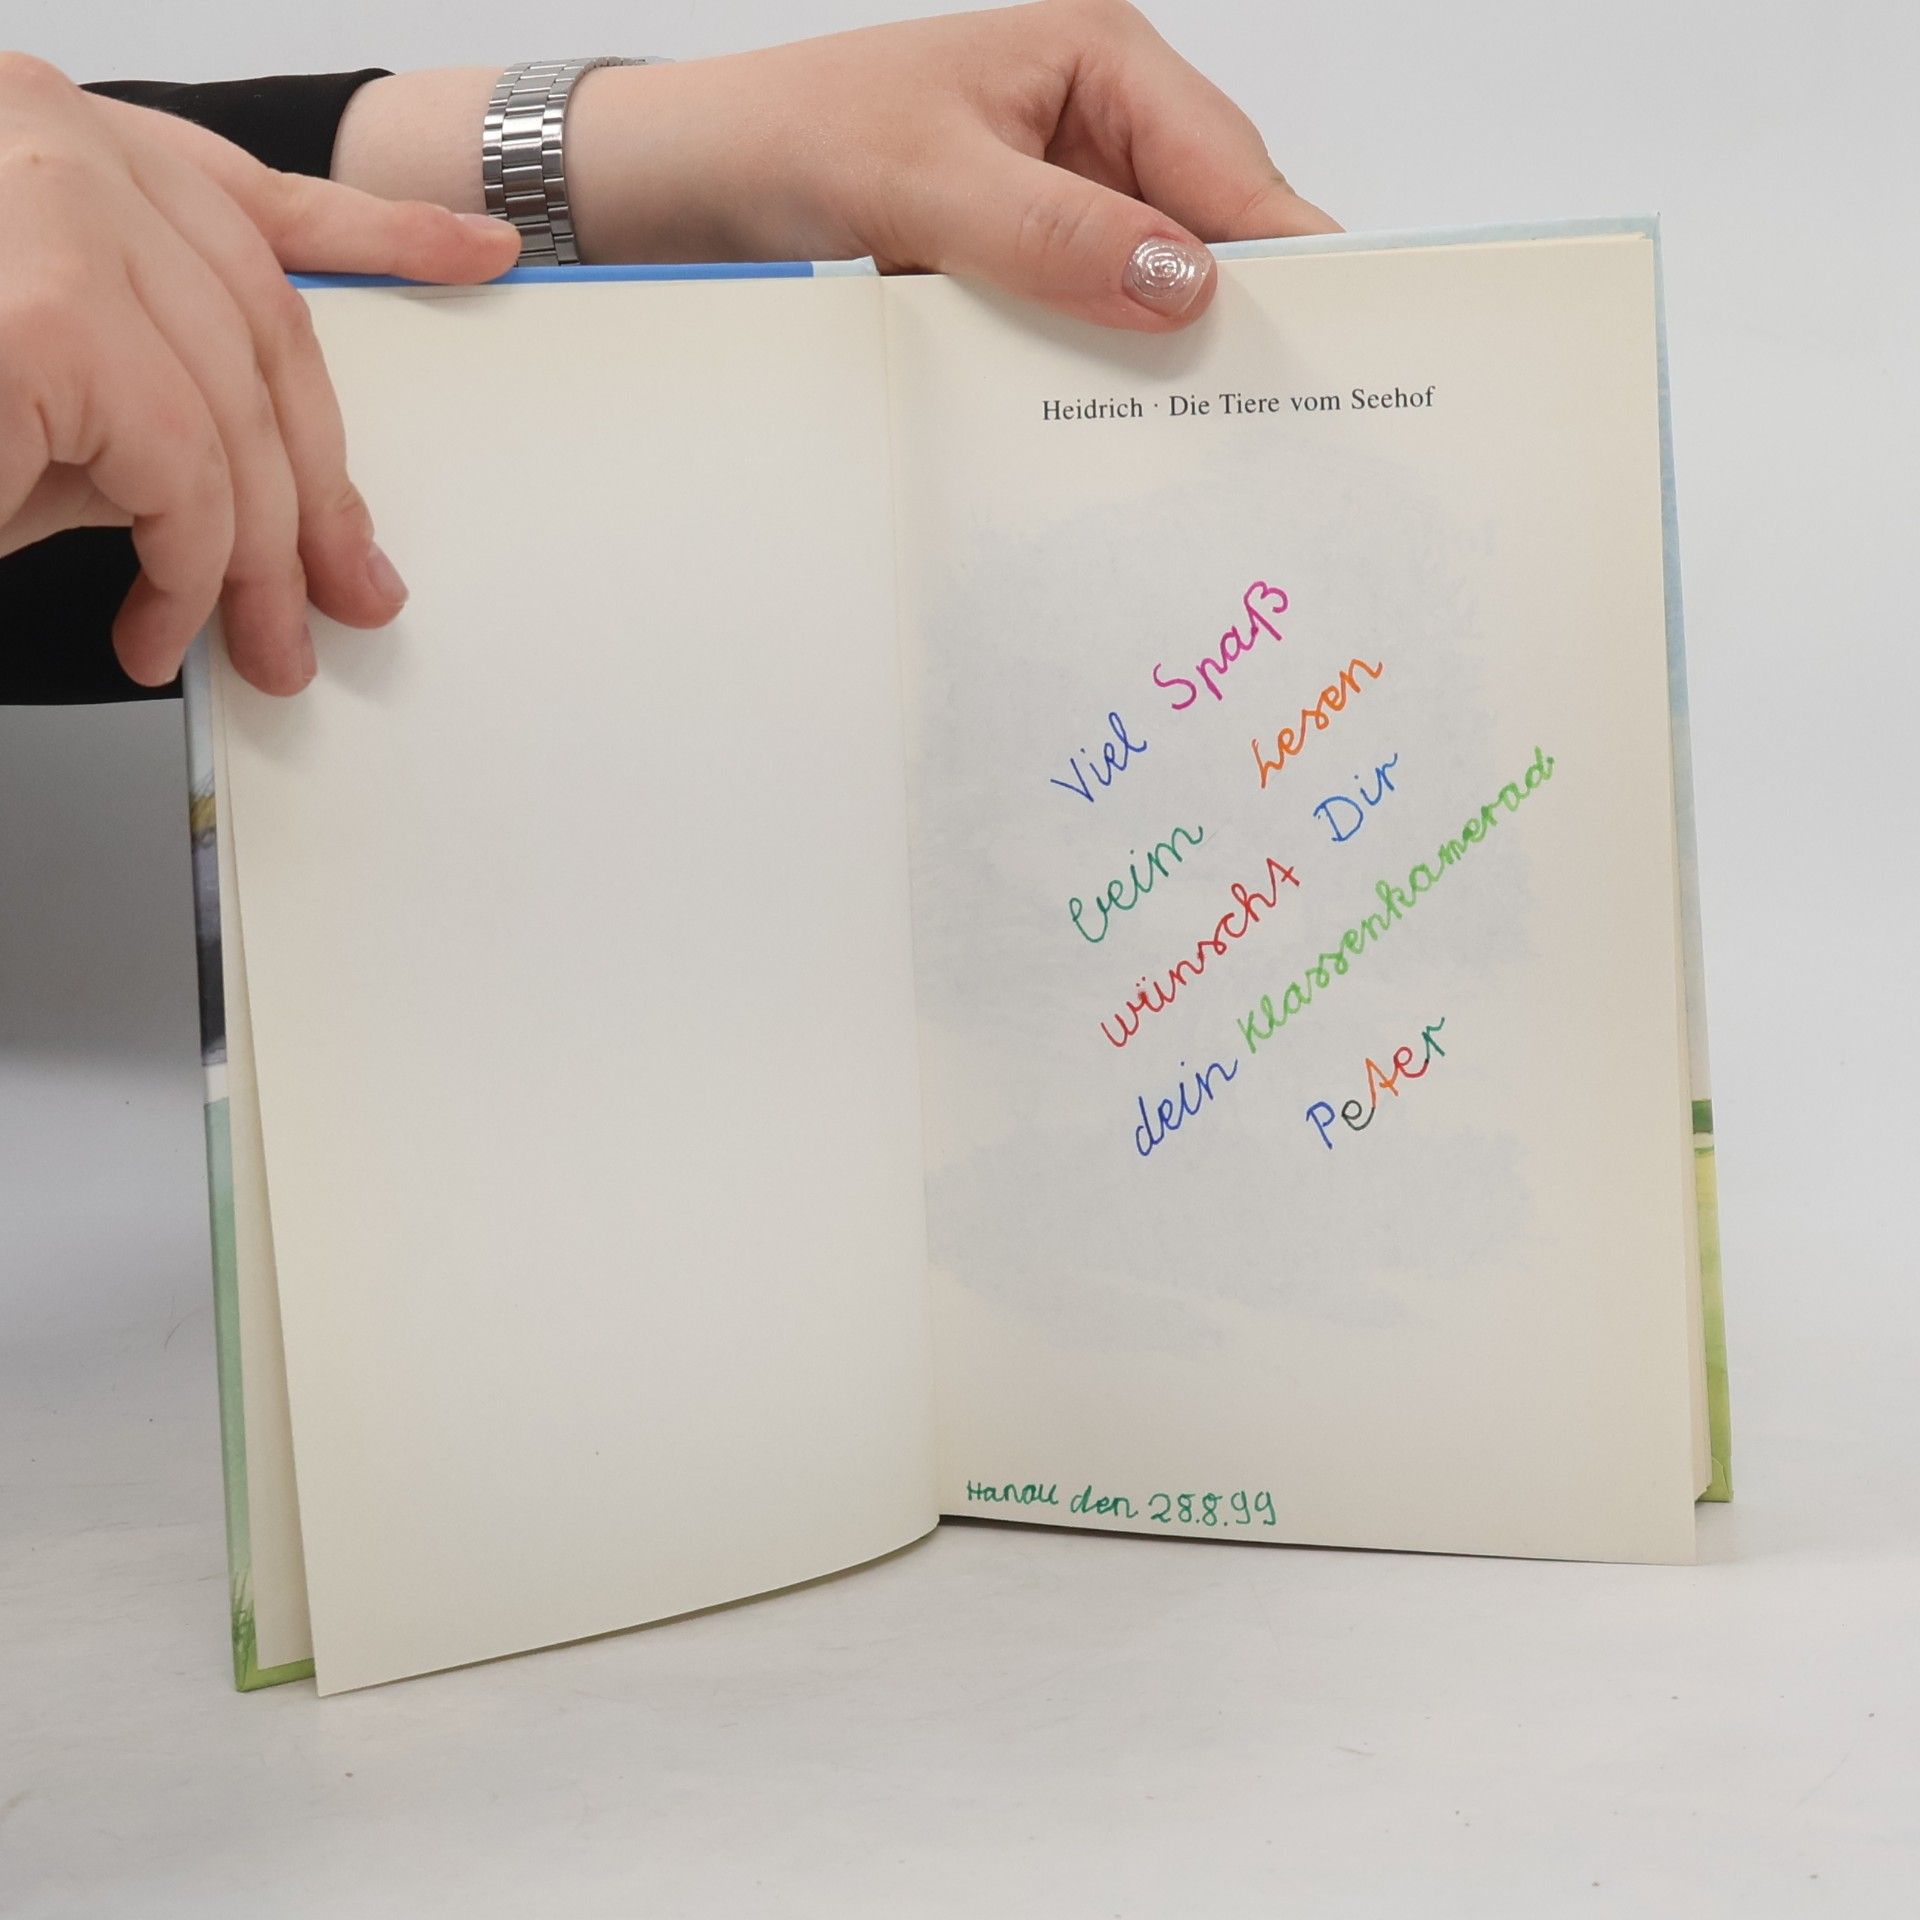 Heidrich · Die Tiere vom Seehof
Viel Spaß
beim Lesen
wünscht Dir
dein Klassenkamerad
Peter
Hanau den 28.8.99